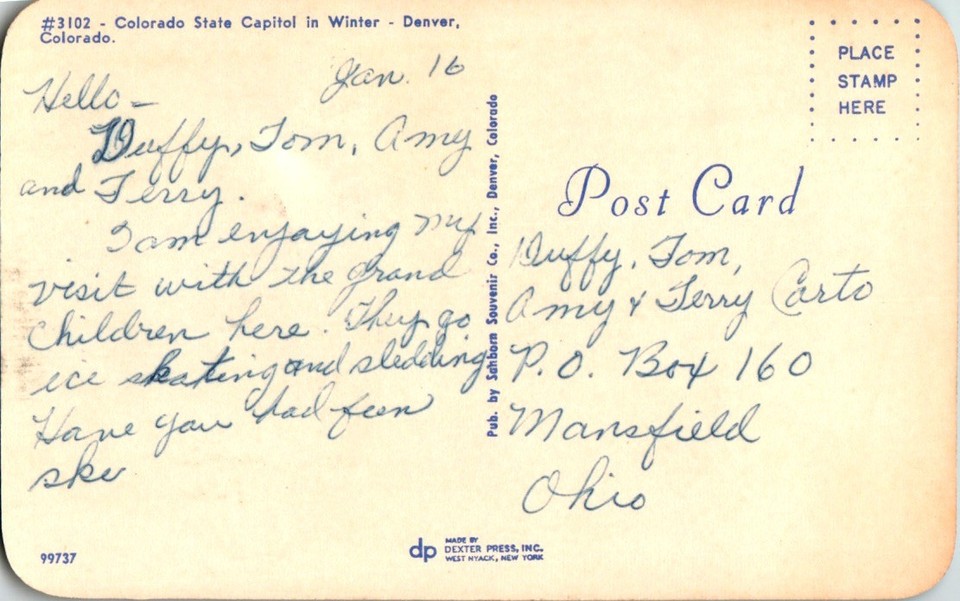 #3102 - Colorado State Capitol in Winter - Denver,
Colorado.
Jan. 16
Hello -
Duffy, Tom, Amy
and Terry.
I am enjoying my
visit with the grand
children here. They go
ice skating and sledding
Have you had fun
ski
Pub. by Sanborn Souvenir Co., Inc., Denver, Colorado
PLACE
STAMP
HERE
Post Card
Duffy, Tom,
Amy & Terry Carto
P.O. Box 160
Mansfield
Ohio
99737
dp
MADE BY
DEXTER PRESS, INC.
WEST NYACK, NEW YORK